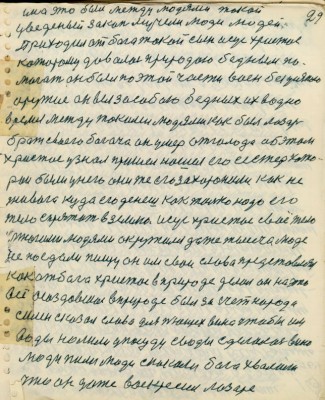 29
има это были между людями такой
уведеный закон мучили люди людей.
Приходил от бога такой сын исус христос
которому давалось природою бедным по-
могат он был по этой части воен без всяко
оружие он вел за собою бедных их в одно
время между такими людями как был лазар
брат своего богача он умер от голода об этом
христос узнал пришел нашел его сестер кото-
рые были у него они же его захоронили как не
живого куда его денеш как только надо его
тело спрятат в землю. исус христос свое тело
многими людями окружил даже тысеча люде
не поедали пищу он им свои слова представлял
как от бога христос в природе делал он на это
все создавался в природе был за счет народа
силен сказал слово для пющих вино чтобы им
воды налили в посуду с воды сделалось вино
люди пили люди спасали бога хвалили
что он даже воскресил лазаря